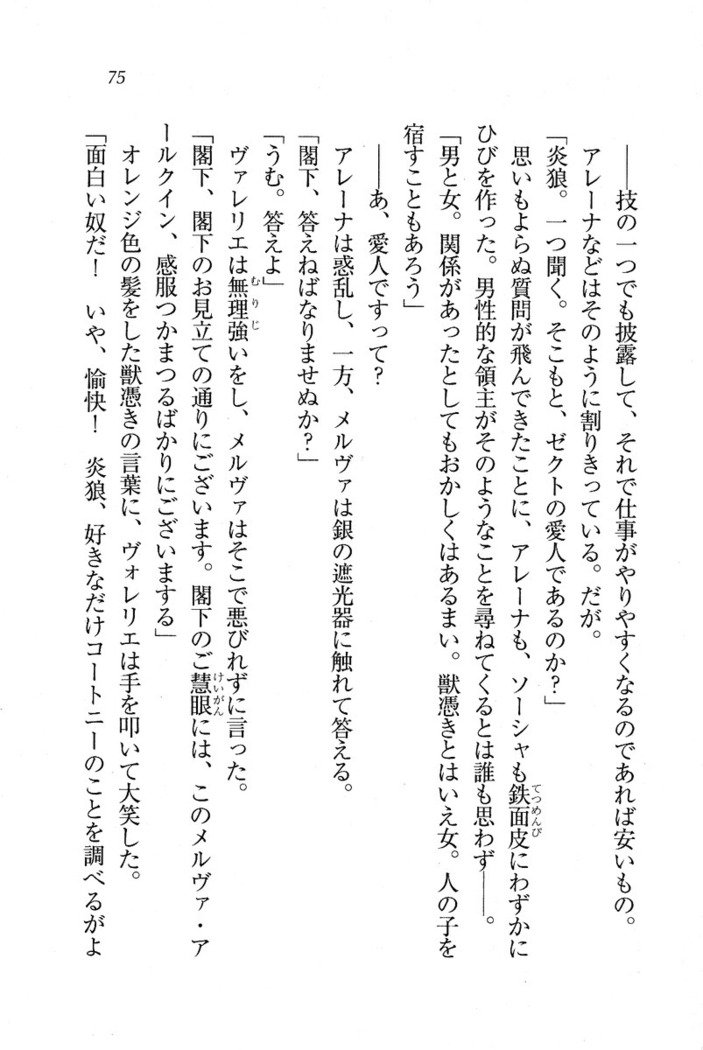 75
――技の一つでも披露して、それで仕事がやりやすくなるのであれば安いもの。
アレーナなどはそのように割りきっている。だが。
「炎狼。一つ聞く。そこもと、ゼクトの愛人であるのか？」
思いもよらぬ質問が飛んできたことに、アレーナも、ソーシャも鉄面皮にわずかに
てつめんぴ
ひびを作った。男性的な領主がそのようなことを尋ねてくるとは誰も思わず――。
「男と女。関係があったとしてもおかしくはあるまい。獣憑きとはいえ女。人の子を
宿すこともあろう」
――あ、愛人ですって？
アレーナは惑乱し、一方、メルヴァは銀の遮光器に触れて答える。
「閣下、答えねばなりませぬか？」
「うむ。答えよ」
ヴァレリエは無理強いをし、メルヴァはそこで悪びれずに言った。
むりじ
「閣下、閣下のお見立ての通りにございます。閣下のご慧眼には、このメルヴァ・ア
けいがん
ールクイン、感服つかまつるばかりにございまする」
オレンジ色の髪をした獣憑きの言葉に、ヴォレリエは手を叩いて大笑した。
「面白い奴だ！　いや、愉快！　炎狼、好きなだけコートニーのことを調べるがよ